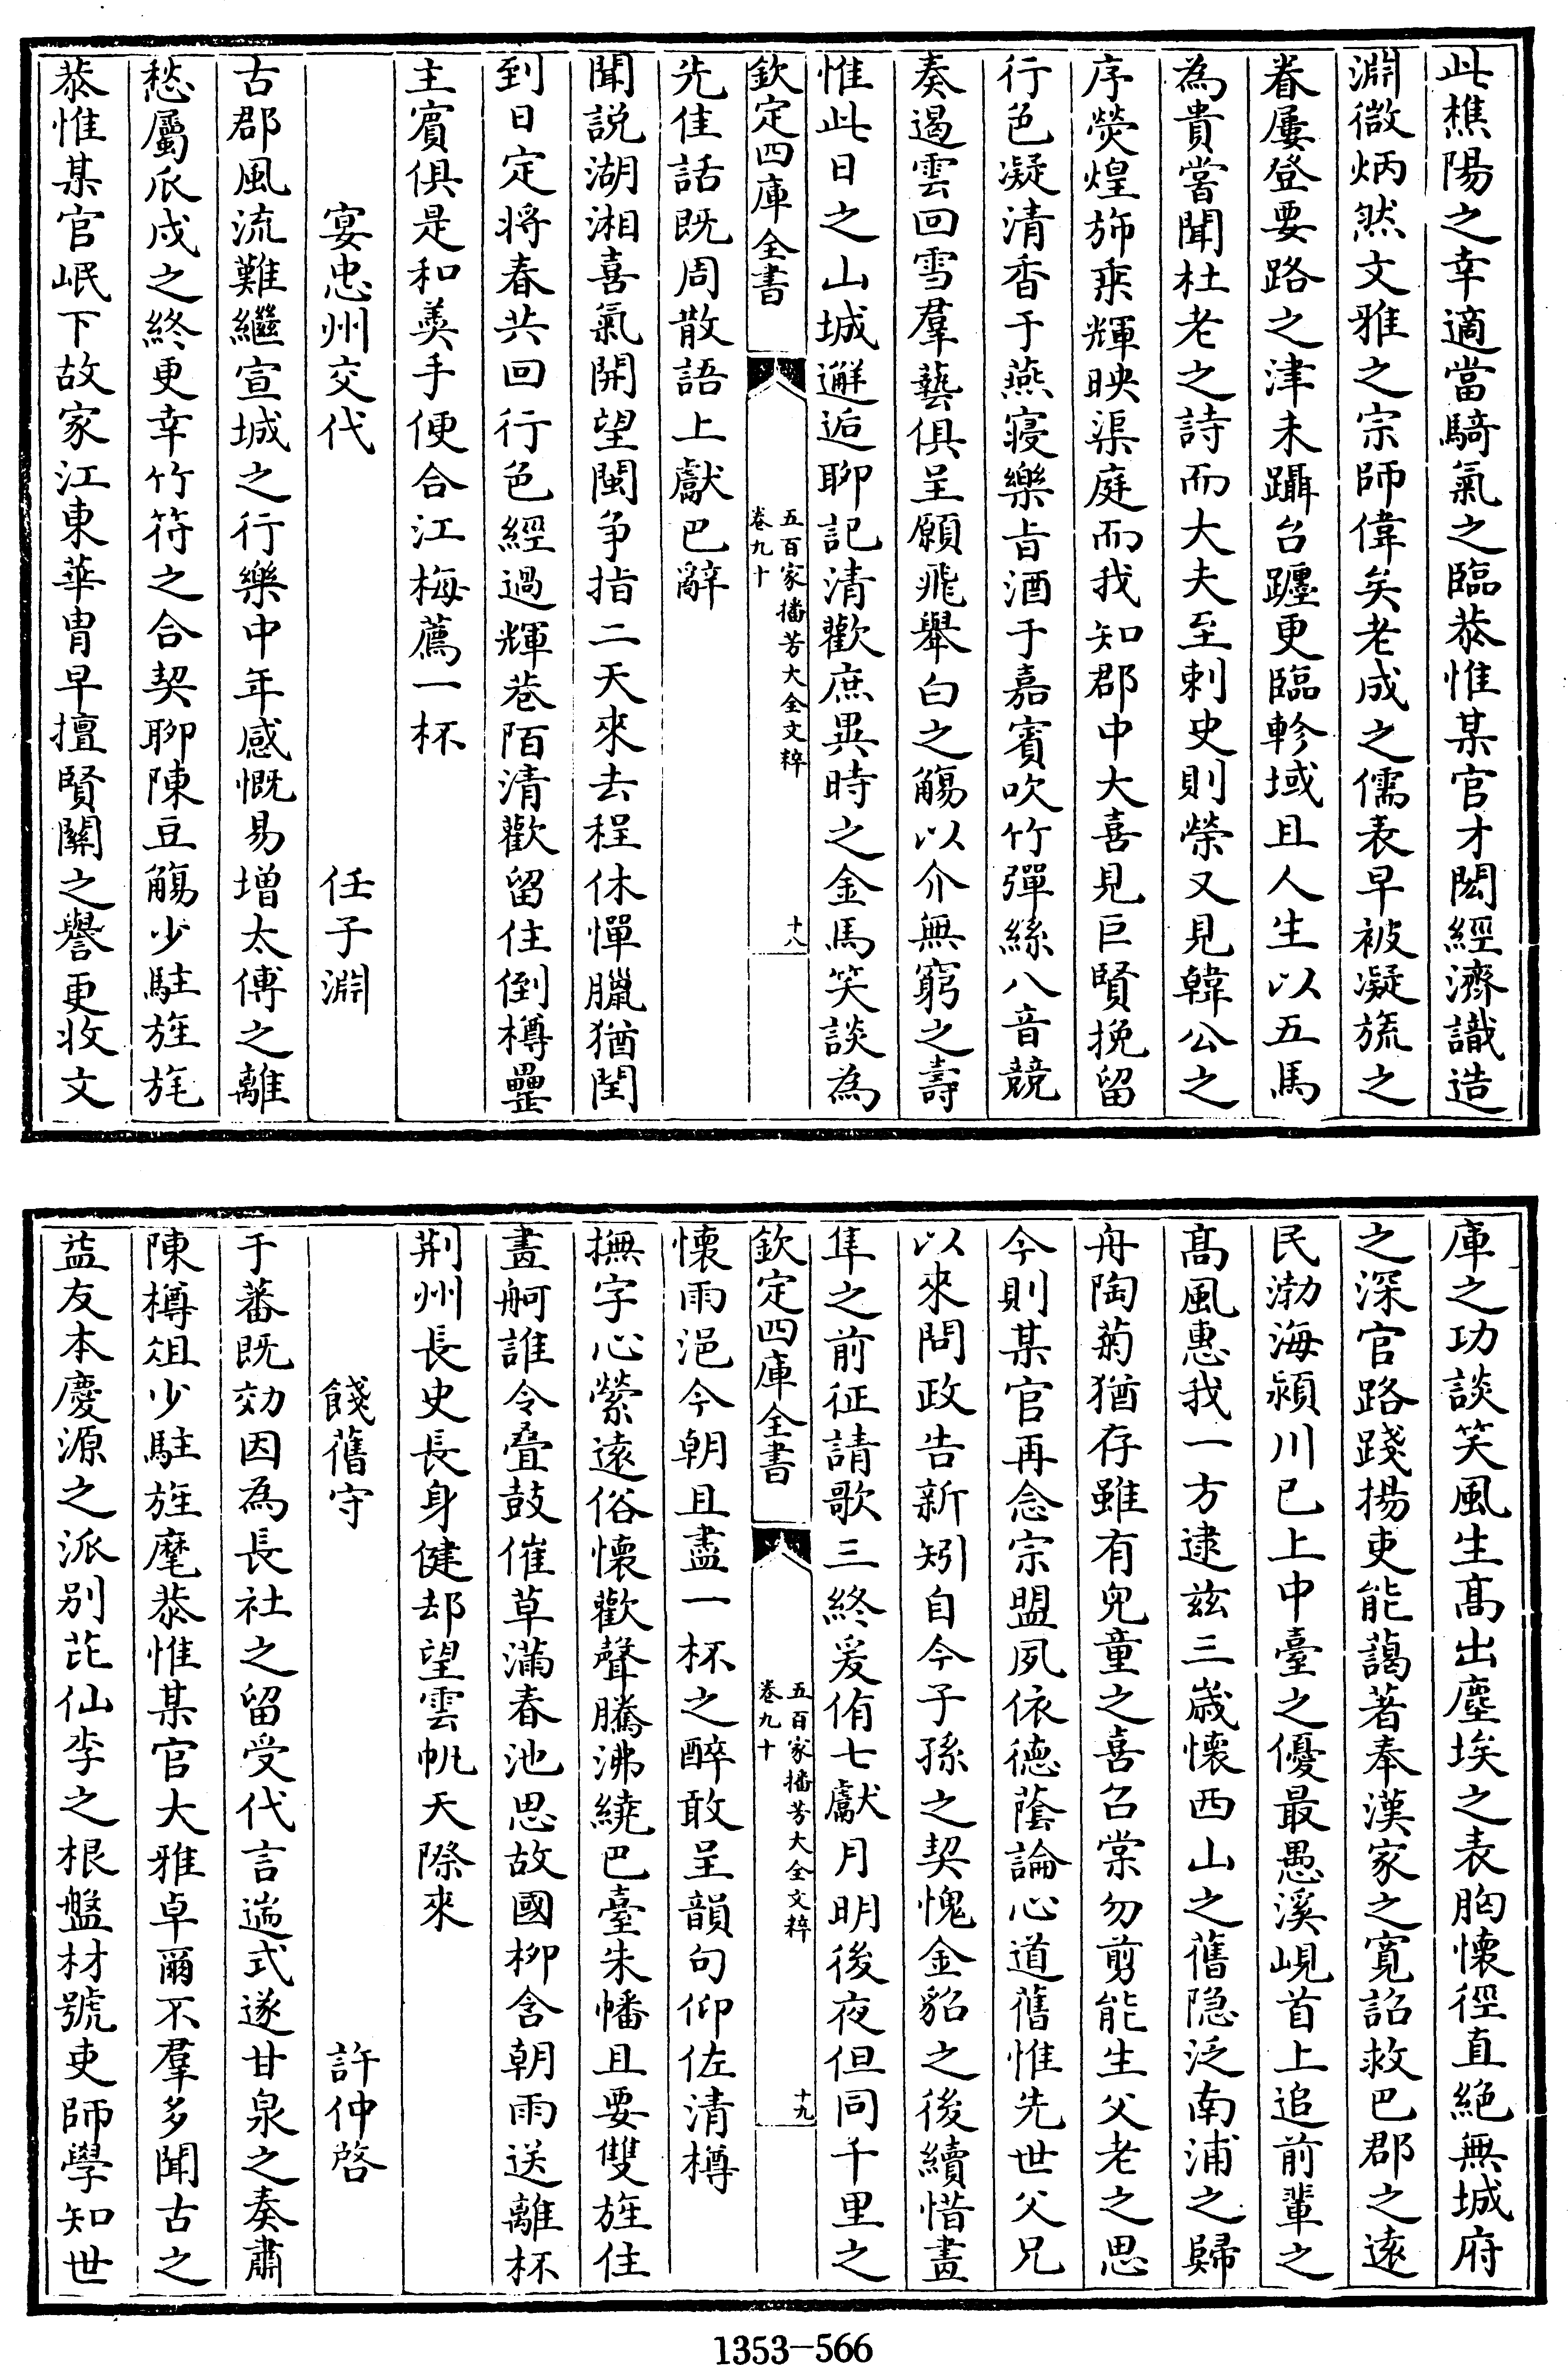 此樵陽之幸適當騎氣之臨恭惟某官才閎經濟識造
淵微炳然文雅之宗師偉矣老成之儒表早被凝旒之
眷屢登要路之津未躡台躔更臨軫域且人生以五馬
為貴嘗聞杜老之詩而大夫至刺史則榮又見韓公之
序熒煌斾乘輝映渠庭而我知郡中大喜見巨賢挽留
行色凝清香于燕寢樂旨酒于嘉賓吹竹彈絲八音競
奏遏雲回雪羣藝俱呈願飛舉白之觴以介無窮之壽
惟此日之山城邂逅聊記清歡庶異時之金馬笑談為
欽定四庫全書
五百家播芳大全文粹
卷九十
十八
先佳話既周散語上獻巴辭
聞説湖湘喜氣開望閩争指二天來去程休憚臘猶閏
到日定將春共回行色經過輝巷陌清歡留住倒樽罍
主賓俱是和羮手便合江梅薦一杯
宴忠州交代
任子淵
古郡風流難繼宣城之行樂中年感慨易增太傅之離
愁屬瓜戍之終更幸竹符之合契聊陳豆觴少駐旌旄
恭惟某官岷下故家江東華胄早擅賢關之譽更收文
庫之功談笑風生高出塵埃之表胸懷徑直絕無城府
之深官路踐揚吏能藹著奉漢家之寛詔救巴郡之遠
民渤海潁川已上中臺之優最愚溪峴首上追前輩之
髙風惠我一方逮兹三嵗懷西山之舊隐泛南浦之歸
舟陶菊猶存雖有兒童之喜召棠勿剪能生父老之思
今則某官再念宗盟夙依德蔭論心道舊惟先世父兄
以來問政告新矧自今子孫之契愧金貂之後續惜畫
隼之前征請歌三終爰侑七獻月明後夜但同千里之
欽定四庫全書
五百家播芳大全文粹
卷九十
十九
懷雨浥今朝且盡一杯之醉敢呈韻句仰佐清樽
撫字心縈遠俗懷歡聲騰沸繞巴臺朱幡且要雙旌住
畫舸誰令叠鼓催草滿春池思故國柳含朝雨送離杯
荆州長史長身健却望雲帆天際來
餞舊守
許仲啓
于蕃既効因為長社之留受代言遄式遂甘泉之奏肅
陳樽俎少駐旌麾恭惟某官大雅卓爾不羣多聞古之
益友本慶源之派别芘仙李之根盤材號吏師學知世